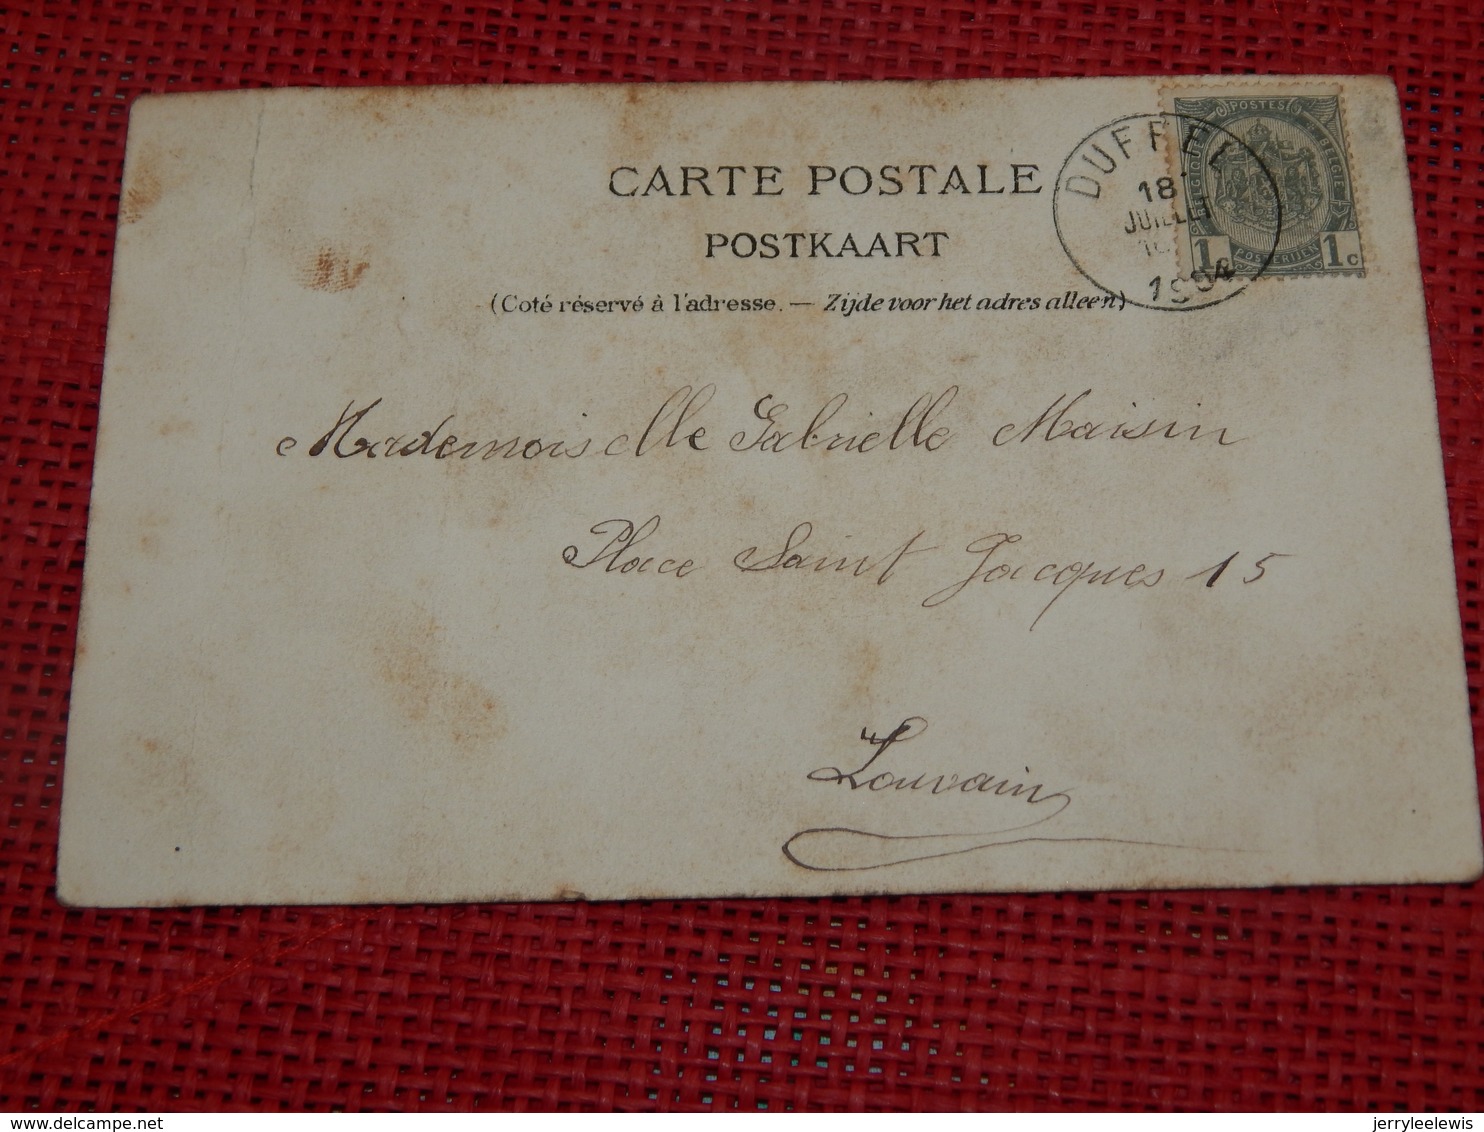 CARTE POSTALE
POSTKAART
(Coté réservé à l'adresse. — Zijde voor het adres alleen)
DUFFEL
18
JUILLET
1904
POSTES
BELGIQUE
BELGIË
POSTERIJEN
1 1c
Mademoiselle Gabrielle Maisin
Place Saint Jacques 15
Louvain
www.delcampe.net
jerryleelewis